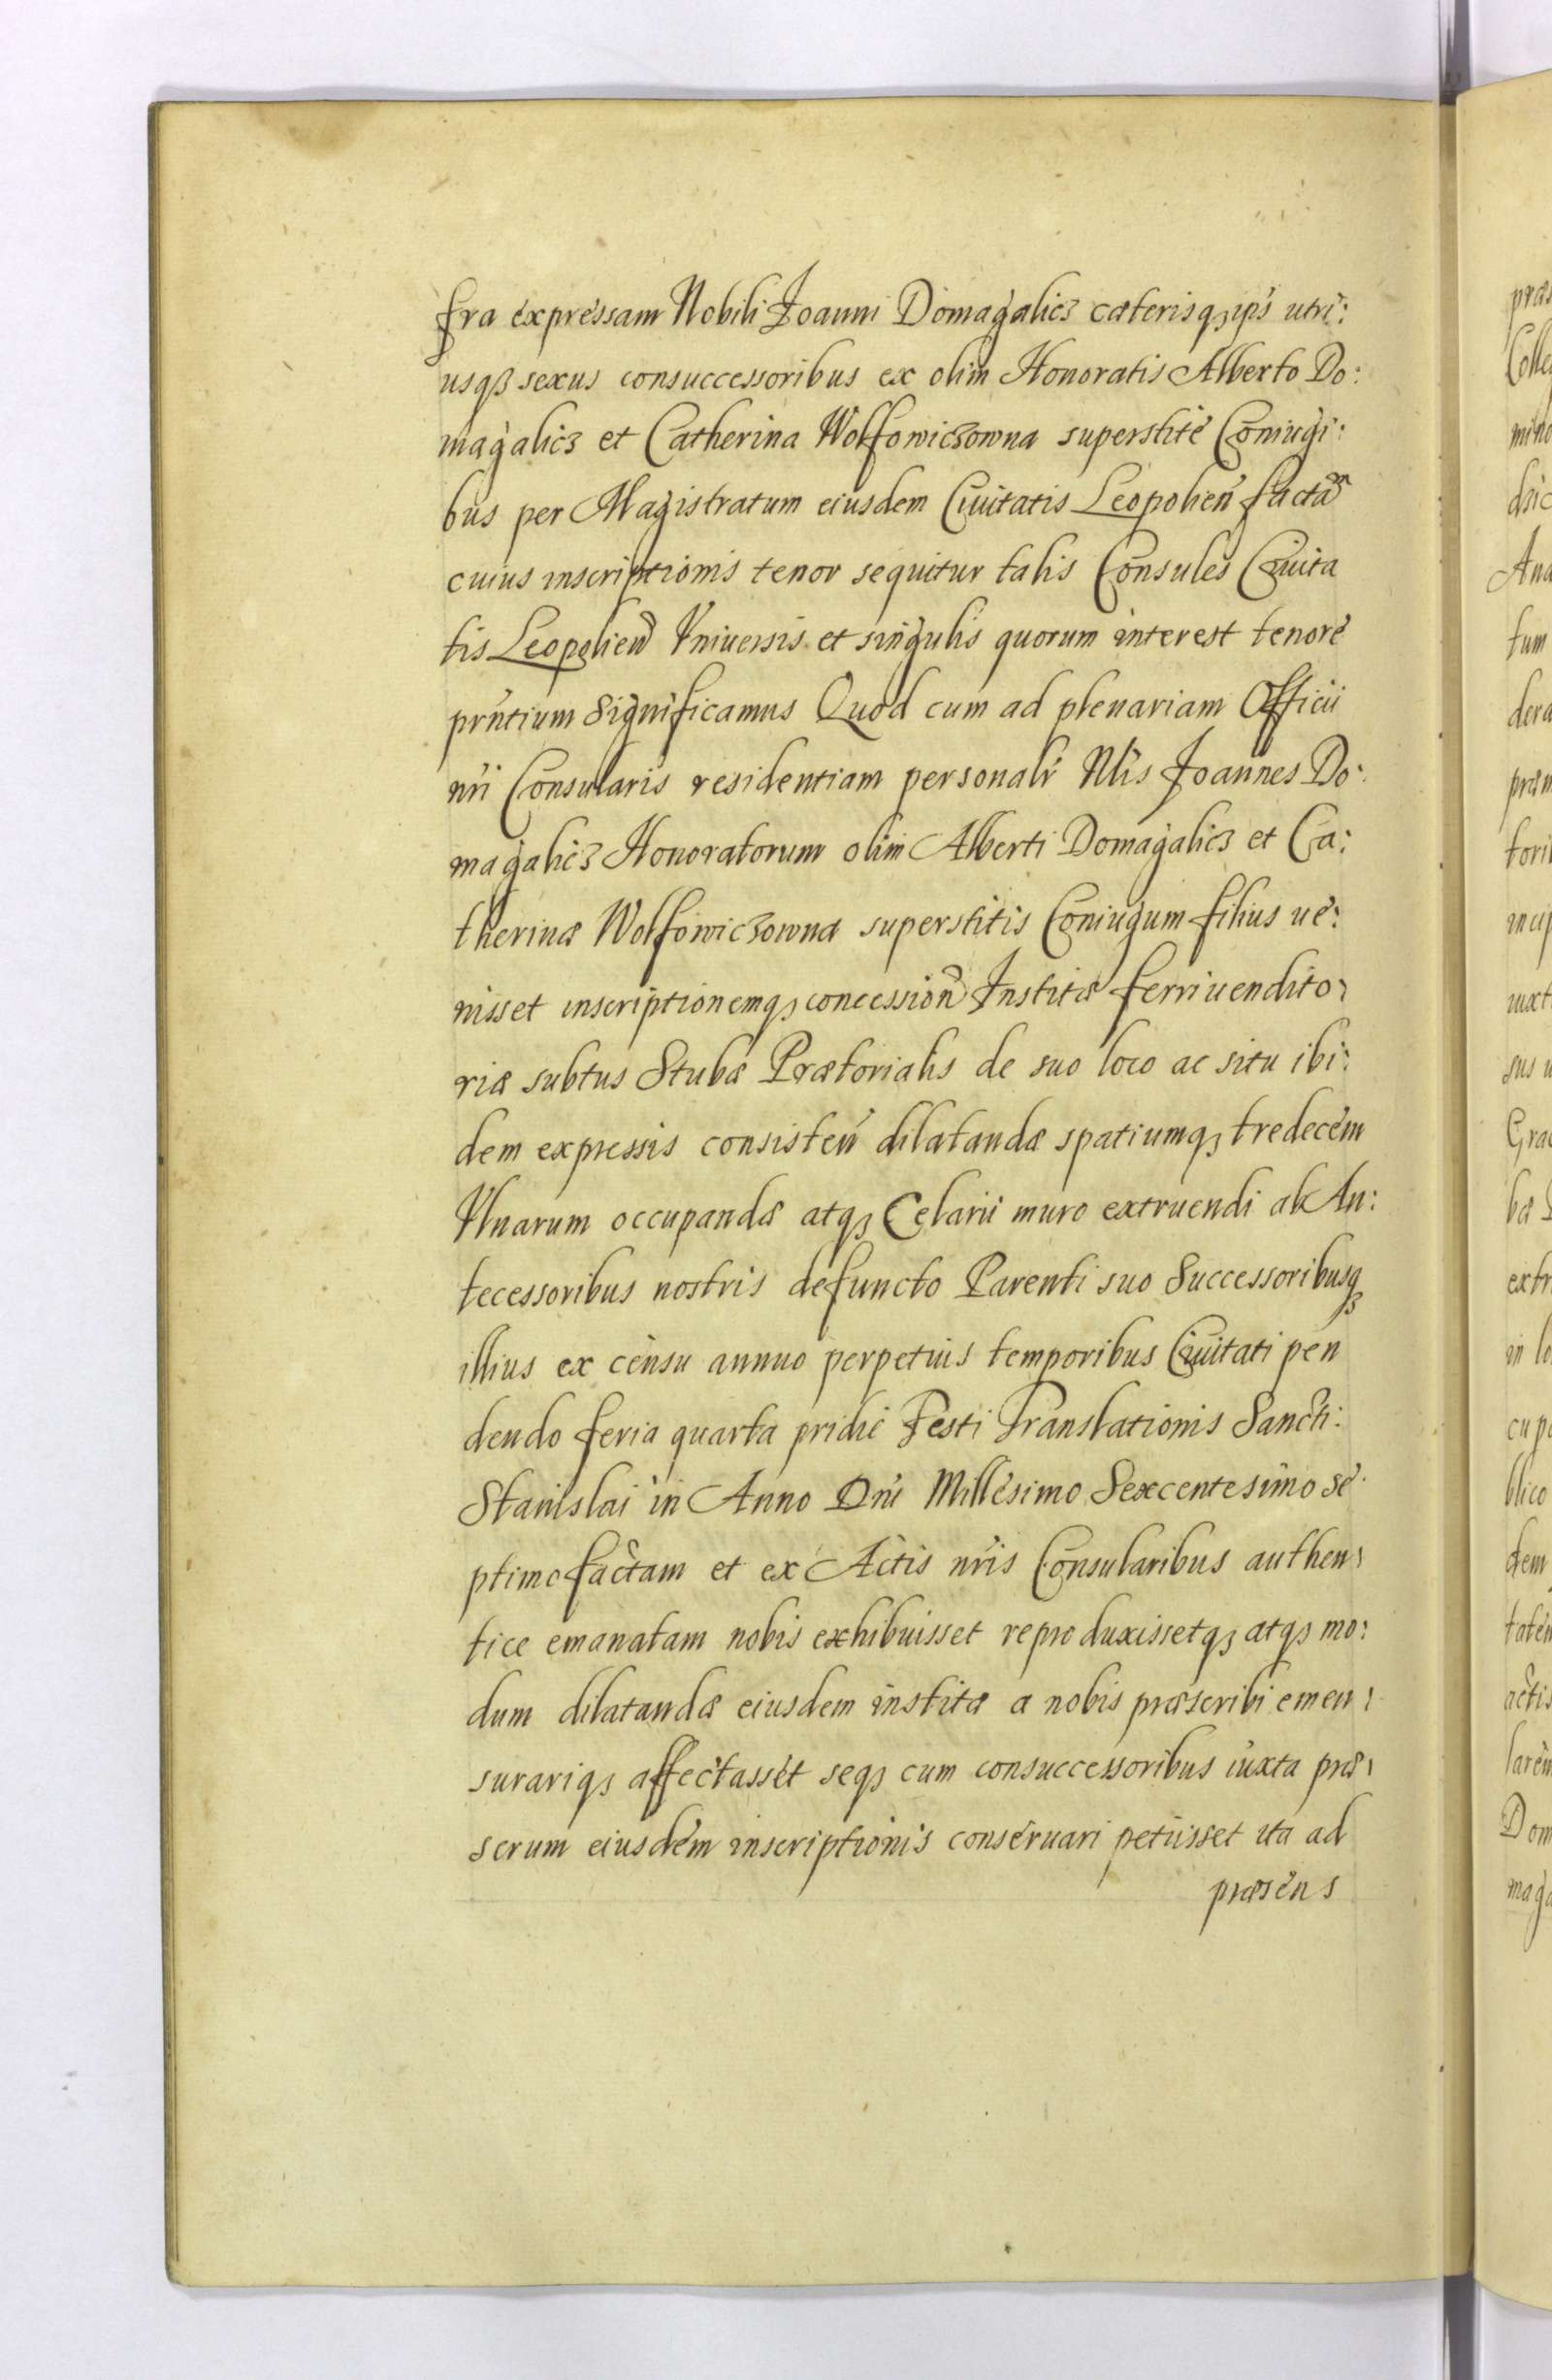 fra expressam Nobili Joanni Domagalicz cæterisqꝫ ips utri:
usqꝫ sexus consuccessoribus ex olim Honoratis Alberto Do:
magalicz et Catherina Wolfowiczowna superstite Coniugi:
bus per Magistratum eiusdem Ciuitatis Leopolien facta
cuius inscriptionis tenor sequitur talis Consules Ciuita
tis Leopolien Vniuersis et singulis quorum interest tenore
prńtium Significamus Quod cum ad plenariam Officii
nri Consularis residentiam personalr Nlis Joannes Do:
magalicz Honoratorum olim Alberti Domagalicz et Ca:
therinæ Wolfowiczowna superstitis Coniugum filius ue:
nisset inscriptionemqꝫ concession Institæ ferriuendito:
riæ subtus Stubæ Prætorialis de suo loco ac situ ibi:
dem expressis consisten dilatandæ spatiumqꝫ tredecem
Vlnarum occupandæ atqꝫ Celarii muro extruendi ab An:
tecessoribus nostris defuncto Parenti suo Successoribusqꝫ
illius ex censu annuo perpetuis temporibus Ciuitati pen
dendo feria quarta pridie Festi Translationis Sancti:
Stanislai in Anno Dni Millesimo Sexcentesimo Se:
ptimo factam et ex Actis nris Consularibus authen:
tice emanatam nobis exhibuisset reproduxissetqꝫ atqꝫ mo:
dum dilatandæ eiusdem institæ a nobis præscribi emen:
surariqꝫ affectasset seqꝫ cum consuccessoribus iuxta præ:
scrum eiusdem inscriptionis conseruari petiisset ita ad
præsens